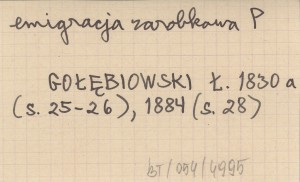 emigracja zarobkowa P
GOŁĘBIOWSKI Ł. 1830 a
(s. 25-26), 1884 (s. 28)
BT/094/4995